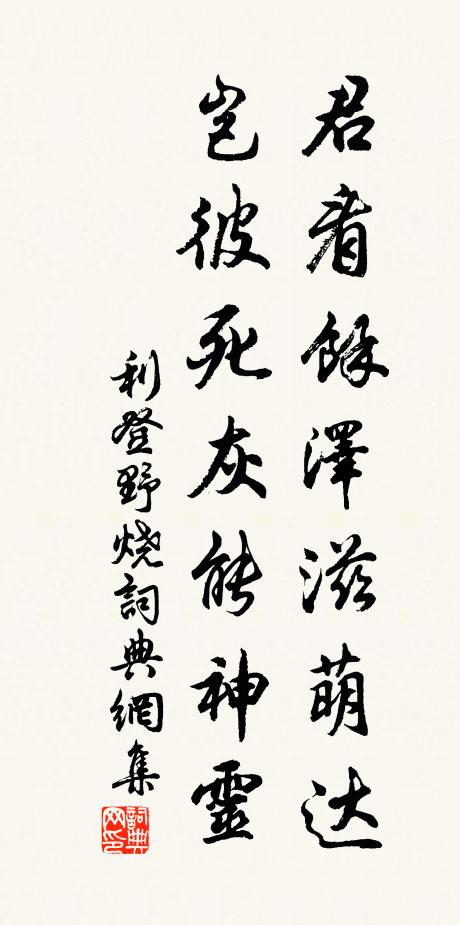 君看餘澤滋萌达
豈彼死灰能神靈
利登野烧詞典網集
詞典网印